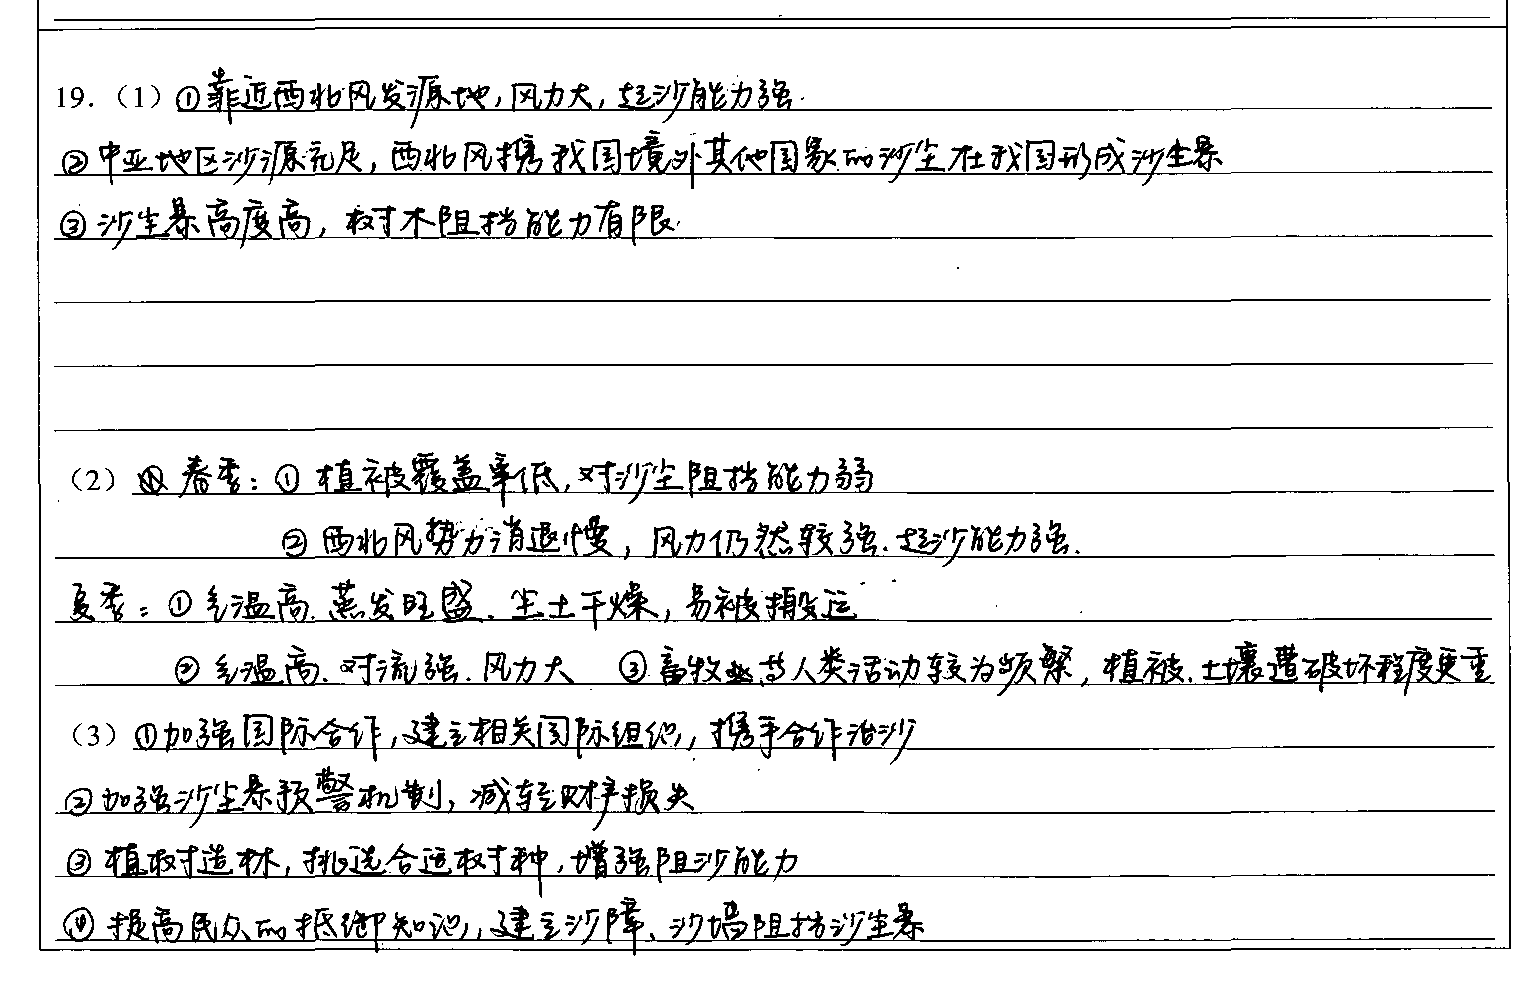 19.（1）①靠近西北风发源地,风力大,起沙能力强.
②中亚地区沙源充足,西北风携我国境外其他国家的沙尘在我国形成沙尘暴
③沙尘暴高度高,树木阻挡能力有限.
（2） 春季:①植被覆盖率低,对沙尘阻挡能力弱
②西北风势力消退慢,风力仍然较强.起沙能力强.
夏季:①气温高.蒸发旺盛.尘土干燥,易被搬运
②气温高.对流强.风力大 ③畜牧业等人类活动较为频繁,植被.土壤遭破坏程度更重
（3）①加强国际合作,建立相关国际组织,携手合作治沙
②加强沙尘暴预警机制,减轻财产损失
③植树造林,挑选合适树种,增强阻沙能力
④提高民众的抵御知识,建立沙障、沙墙阻挡沙尘暴